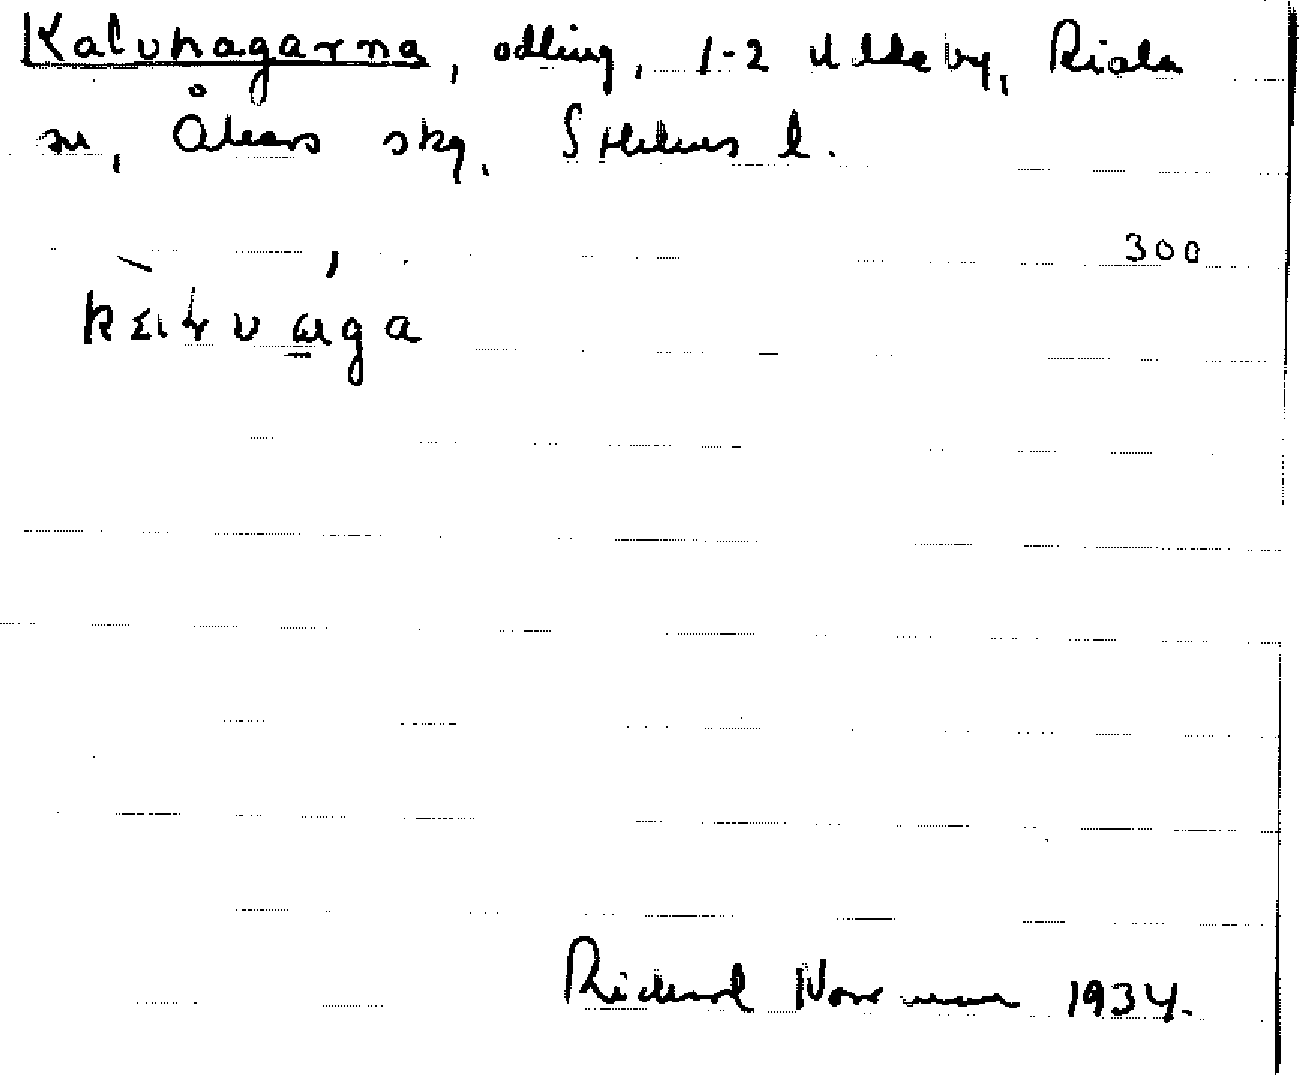 Kalvhagarna, odling, 1-2 Ulleby, Riala
sn, Åkers skg, Sthlms l.
300
Rickard Norrman 1934.